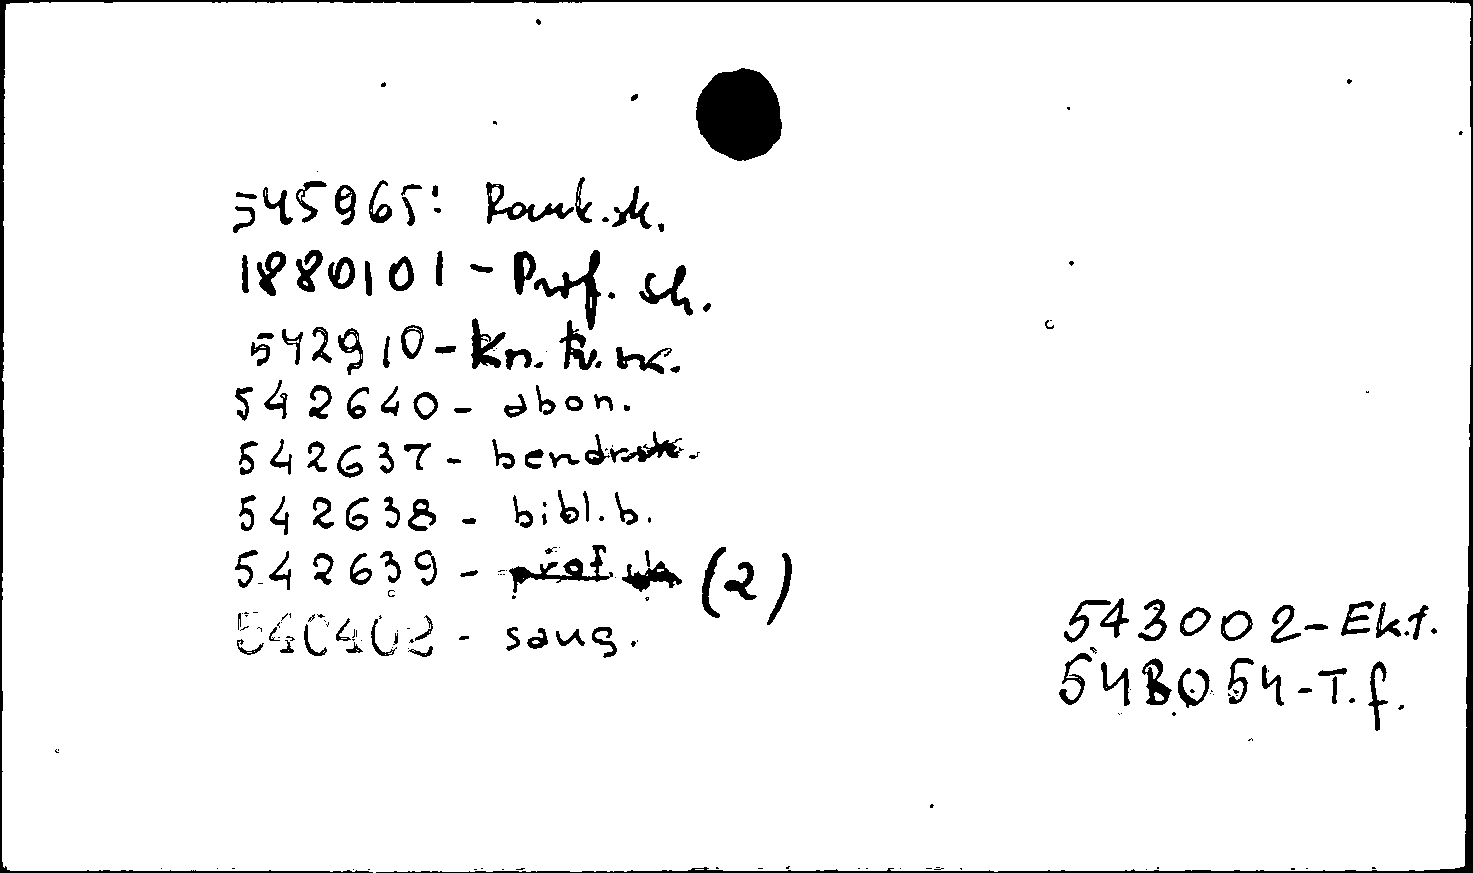 545965: Rank.sk.
1880101 - Prof. sk.
542910 - Kn. tv. sk.
542640 - abon.
542637 - bendrsk.
542638 - bibl. b.
542639 - prof. sk (2)
540402 - saug.
543002 - Ekt.
548054 - T. f.